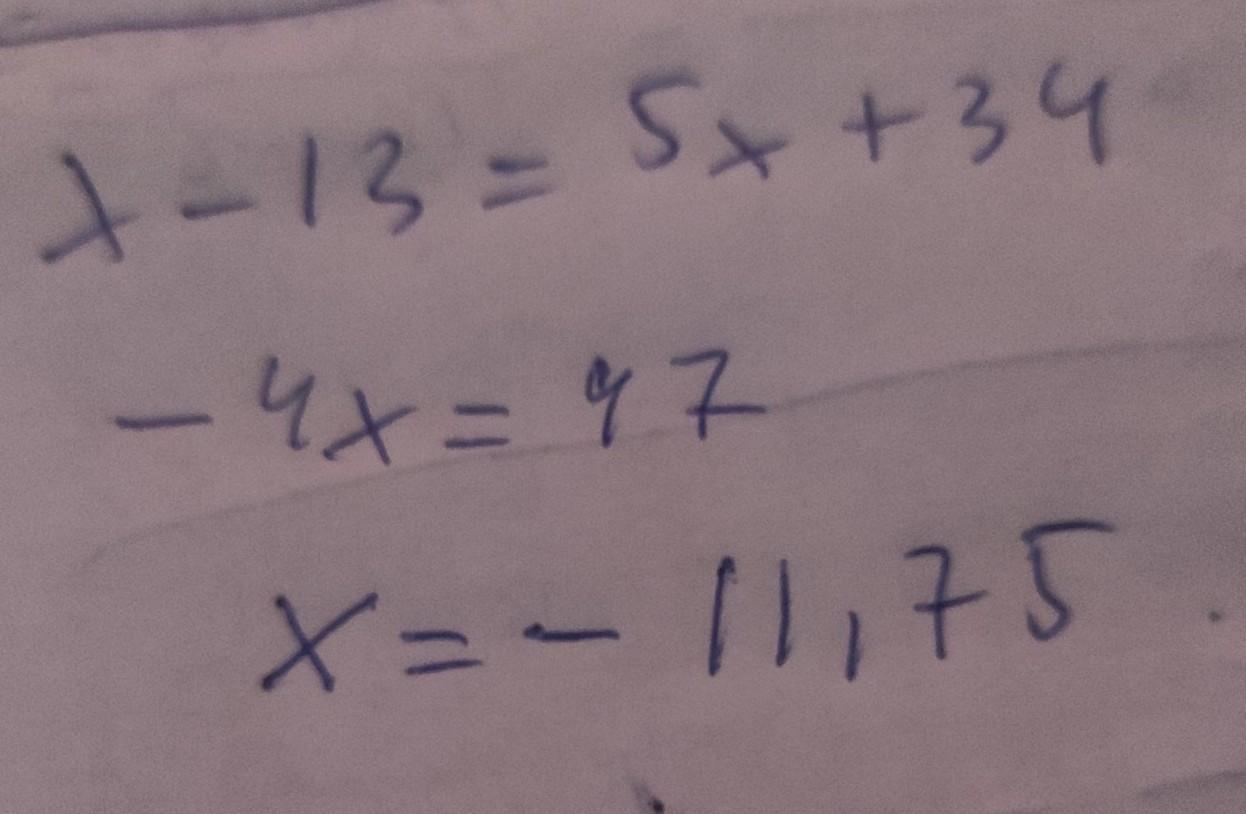 x - 13 = 5x + 34
- 4x = 47
x = - 11,75